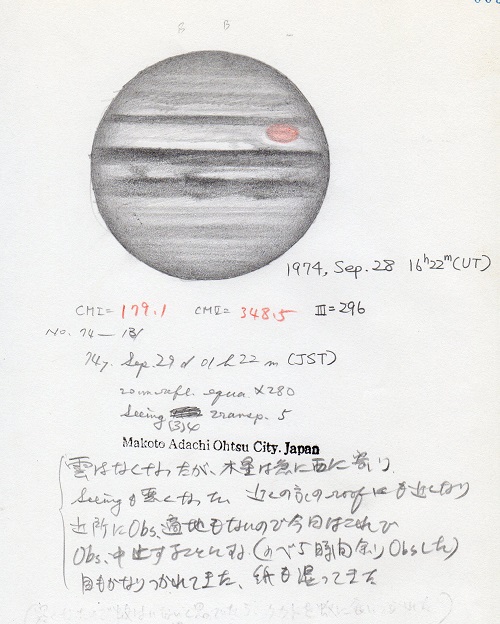 S B
1974, Sep. 28 16h22m (UT)
CMI= 179.1 CMII= 348.5 III=296
No. 74—131
74y. Sep. 29d 01h22m (JST)
20cm refl. equa. ×280
Seeing (3)4 transp. 5
Makoto Adachi Ohtsu City. Japan
雲はなくなったが、木星は急に西に寄り
Seeingも悪くなった 近くの家のroofにも近くなり
近所にObs.適地もないので今日はこれで
Obs.中止することにする (のべ5時間余りObsした)
目もかなりつかれてきた、紙も湿ってきた